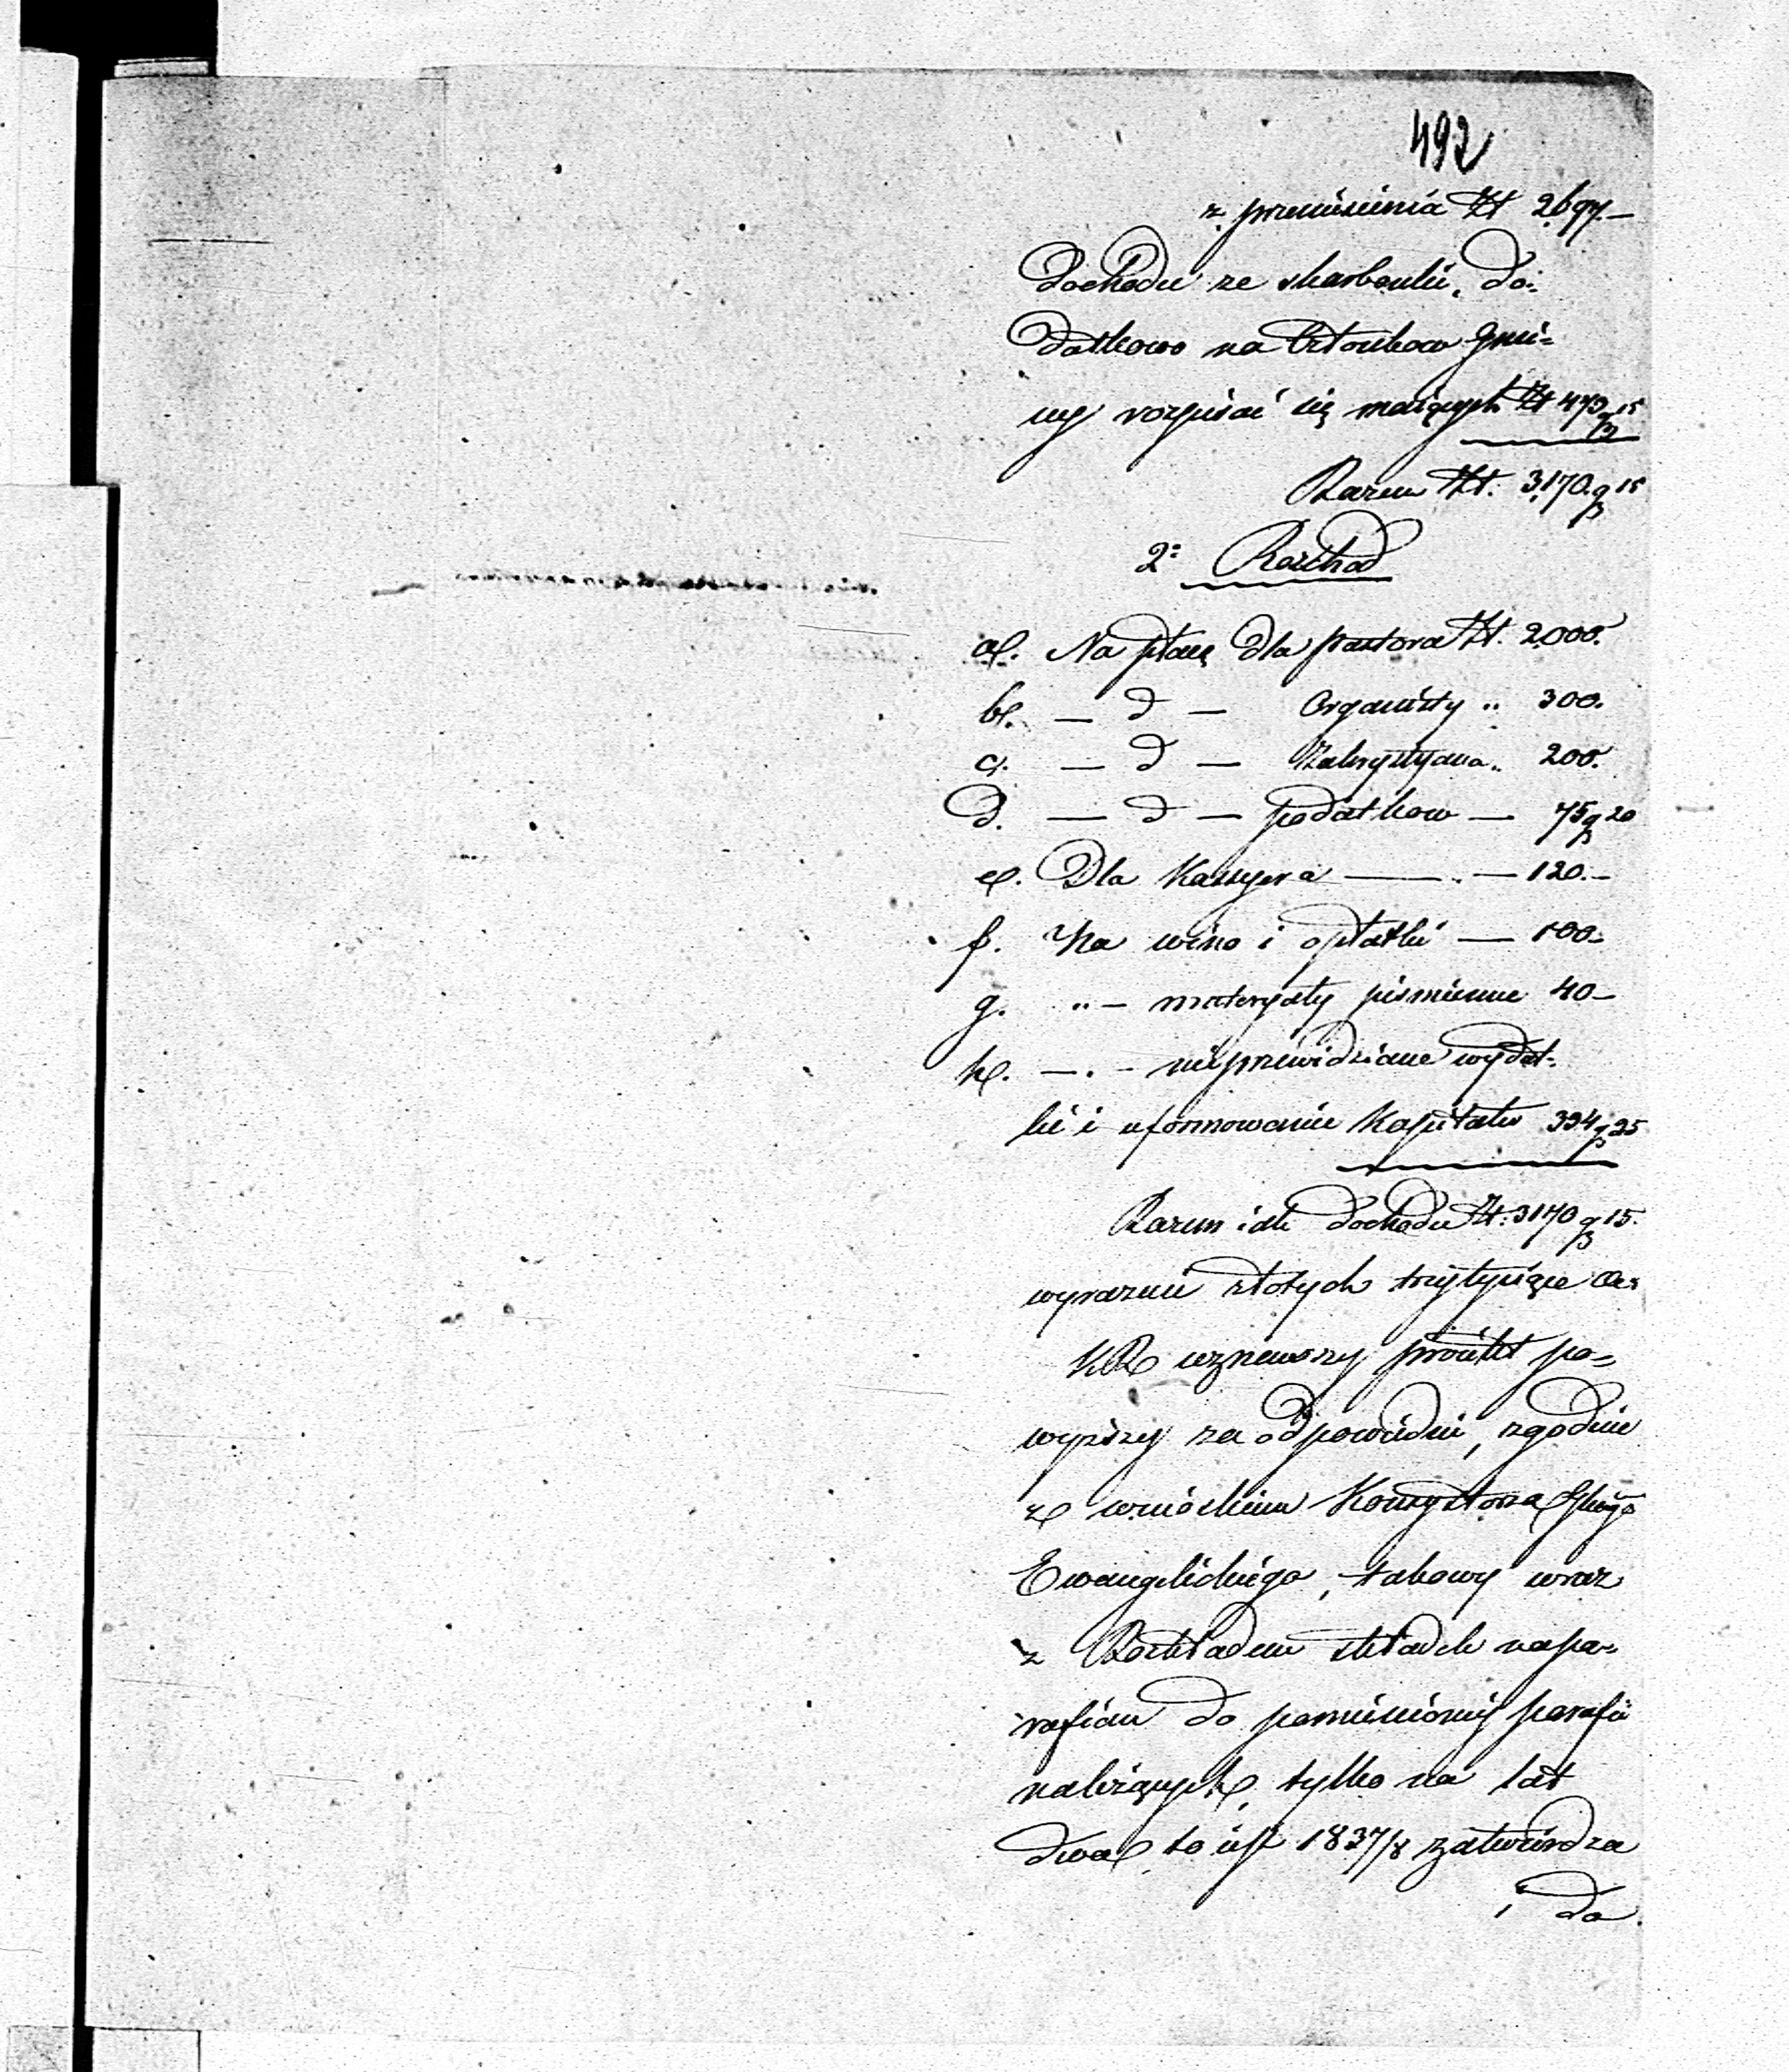 492
z przeniesienia Zł 2697.—
Dochodu ze skarbonki, do-
datkowo na Członkow Gmi-
ny rozpisać się maiących Zł 473 gr 15
Razem Zł. 3,170. gr 15
2° Rozchod
a/. Na płacę dla pastora Zł. 2,000.
b/. — d — Organisty „ 300.
c/. — d — Zakrystyana „ 200.
d. — d — podatkow — 75 gr 20
e/. Dla Kassyera — „ — 120.—
f. Na wino i opłatki — 100-
g. „ — materyały piśmienne 40—
h/. — „ - nieprzewidziane wydat-
ki i uformowanie Kapitału 334 gr 25
Razem iak dochodu Zł. 3170 gr 15.
wyraznie złotych trzy tysiące
KR uznawszy proiekt po-
wyższy za odpowiedni, zgodnie
z wnioskiem Konsystorza
Ewangelickiego, takowy wraz
z Rozkładem składek na pa-
rafian do pomienioney parafii
należących, tylko na lat
dwa to iest 1837/8 zatwierdza
i do